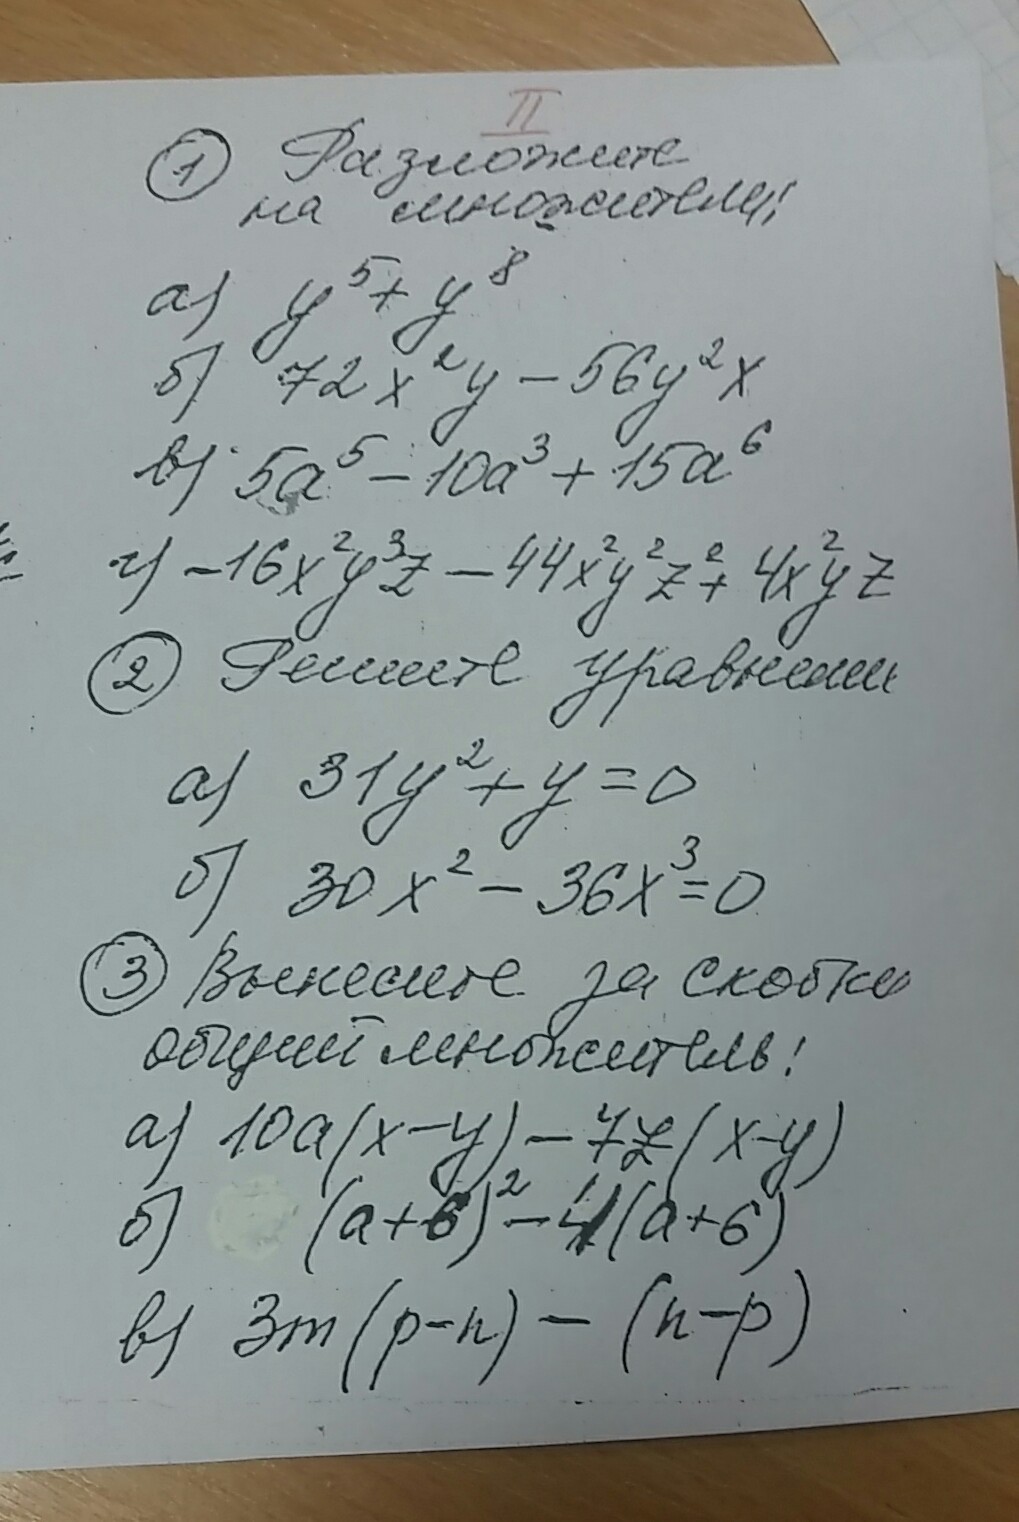 II
① Разложите
на множители:
а) y⁵ + y⁸
б) 72x²y − 56y²x
в) 5a⁵ − 10a³ + 15a⁶
г) −16x²y³z − 44x²y²z² + 4x²yz
② Решите уравнения
а) 31y² + y = 0
б) 30x² − 36x³ = 0
③ Вынесите за скобки
общий множитель!
а) 10a(x−y) − 7z(x−y)
б) (a+6)² − 4(a+6)
в) 3m(p−n) − (n−p)